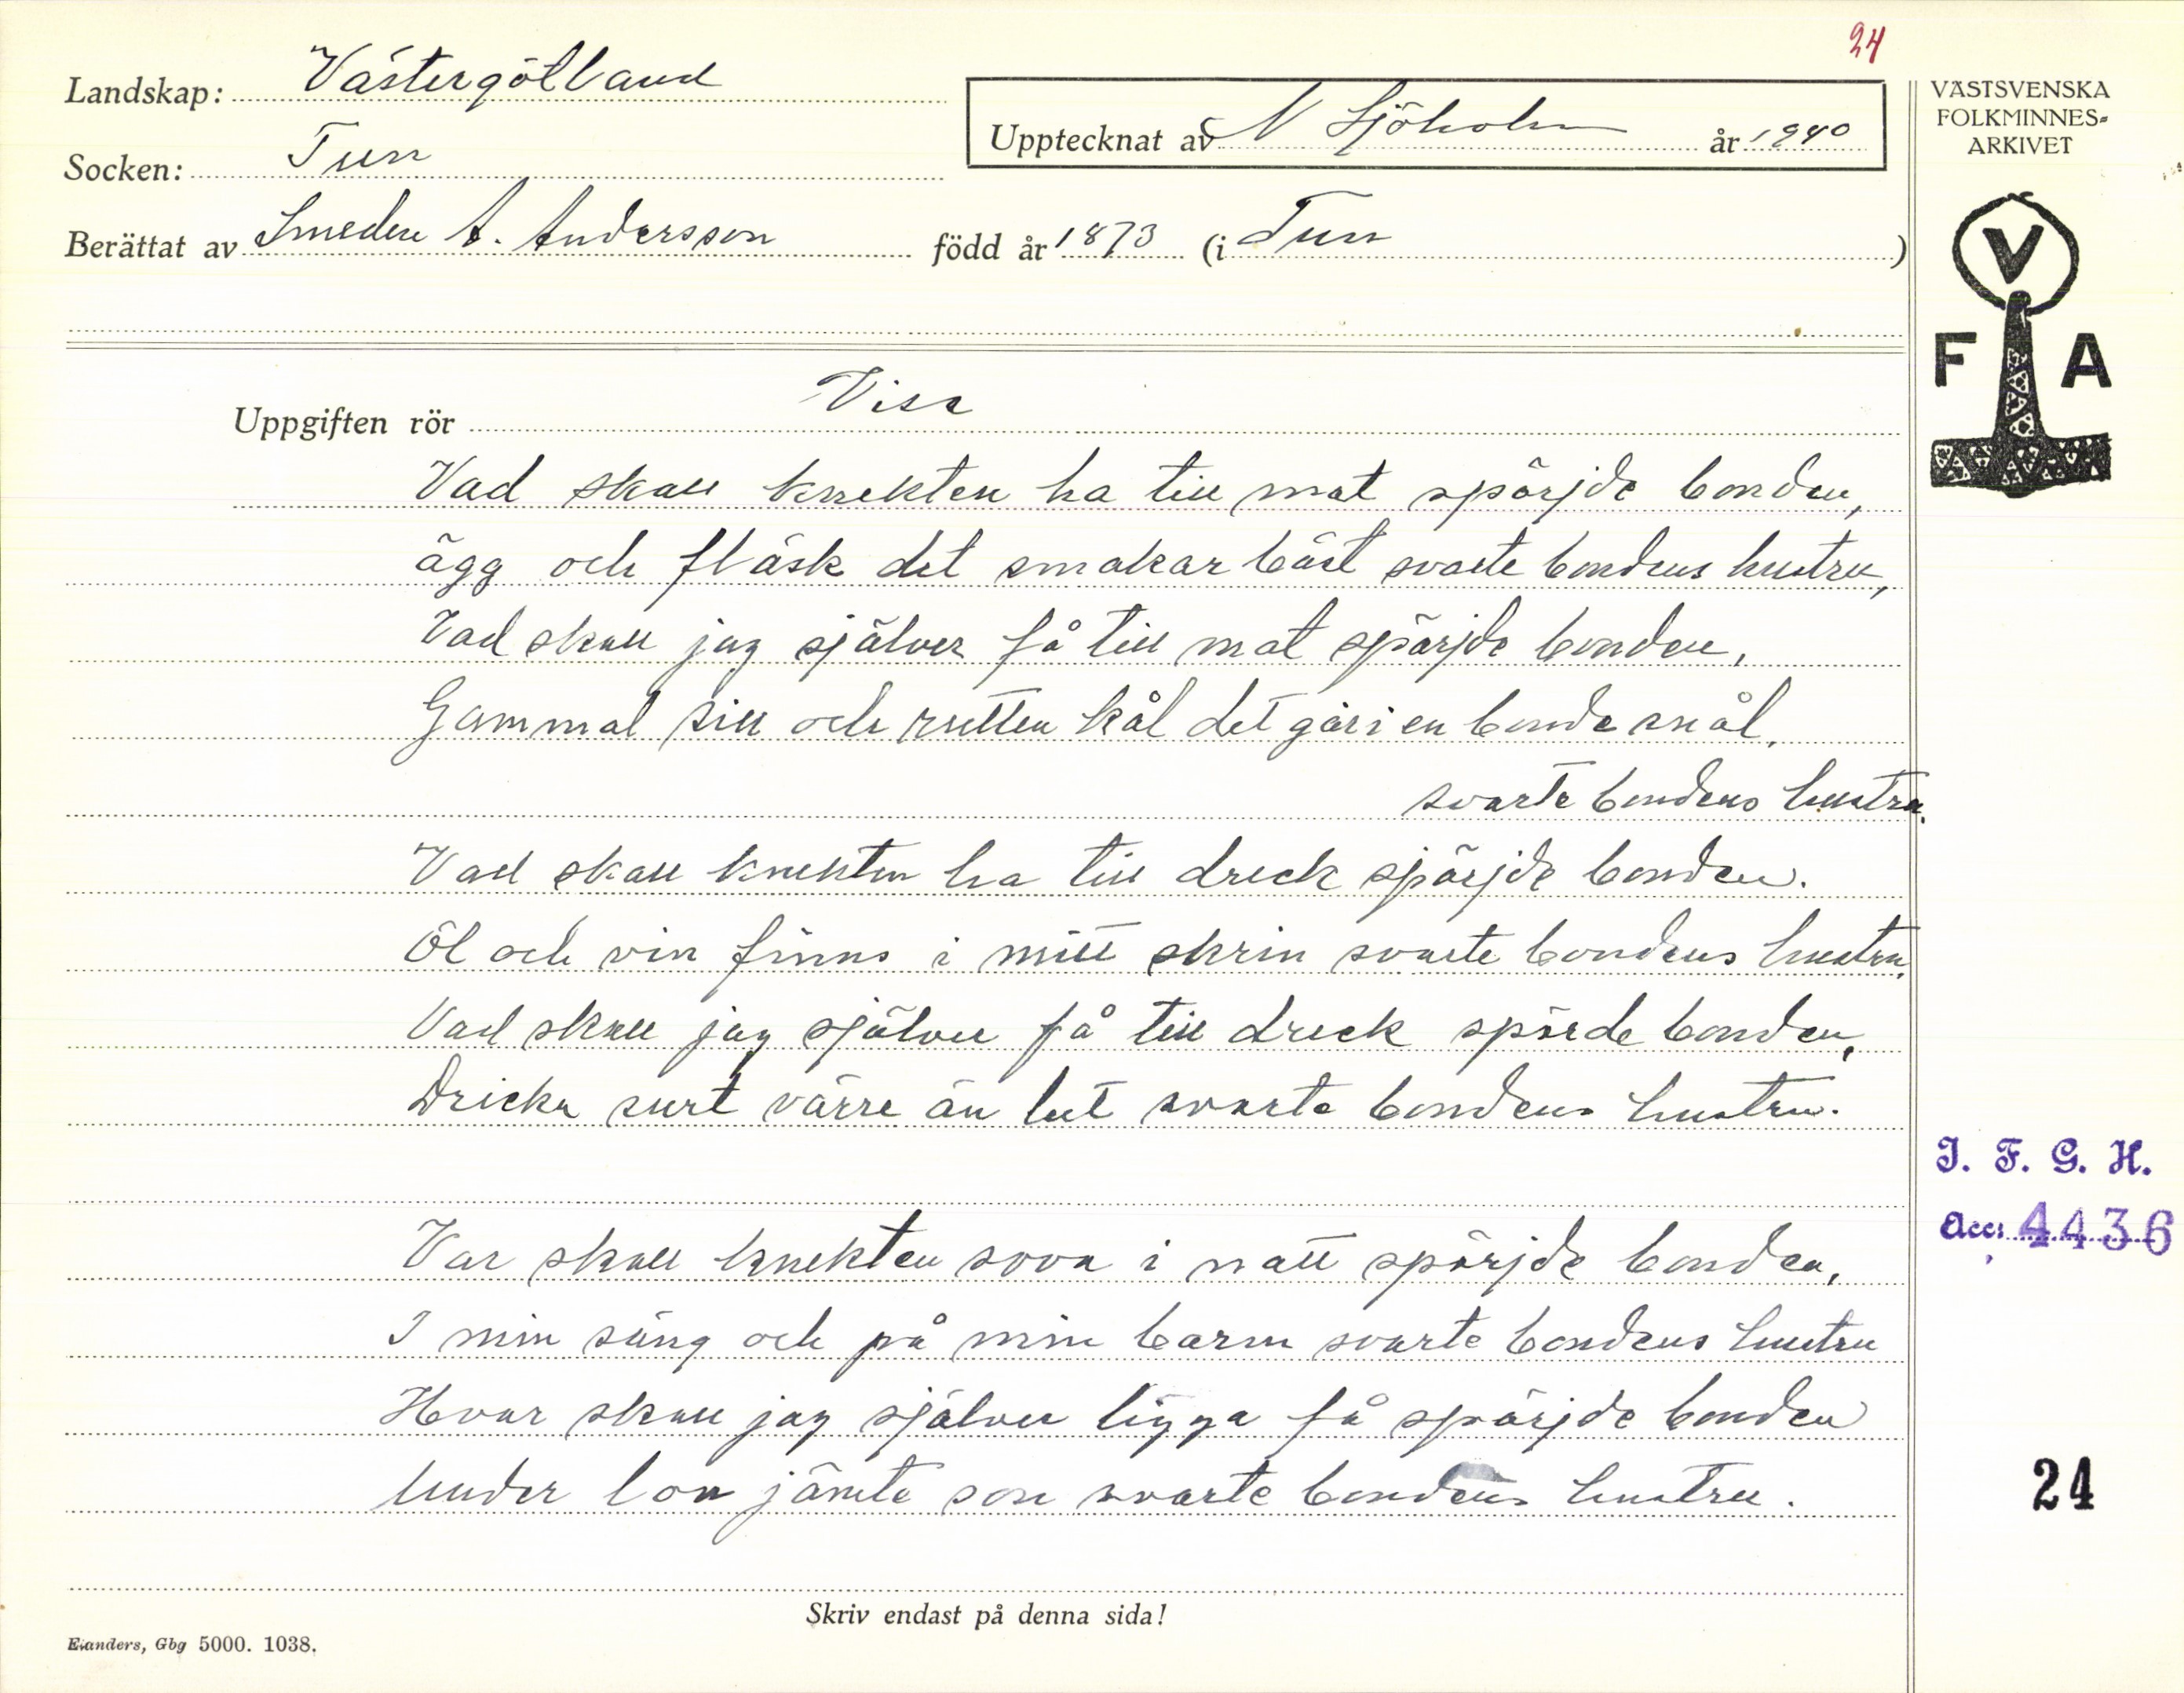 24
Landskap: Västergötland
Upptecknat av N Sjöholm år 1940
Socken: Tun
Berättat av Smeden A. Andersson född år 1873 (i Tun)
VÄSTSVENSKA
FOLKMINNES-
ARKIVET
V
F A
Uppgiften rör Visa
Vad skall knekten ha till mat spörjde bonden,
ägg och fläsk det smakar bäst svarte bondens hustru,
Vad skall jag själver få till mat spörjde bonden,
Gammal sill och rutten kål det gör i en bonde mål,
svarte bondens hustru.
Vad skall knekten ha till drick spörjde bonden.
Öl och vin finns i mitt skrin svarte bondens hustru.
Vad skall jag själver få till drick spörde bonden,
Dricka surt värre än lut svarte bondens hustru.
Var skall knekten sova i natt spörjde bonden,
I min säng och på min barm svarte bondens hustru
Hvar skall jag själver ligga få spörjde bonden
Under lon jämte son svarte bondens hustru.
I. F. G. H.
Acc: 4436
24
Skriv endast på denna sida!
Elanders, Gbg 5000. 1038.